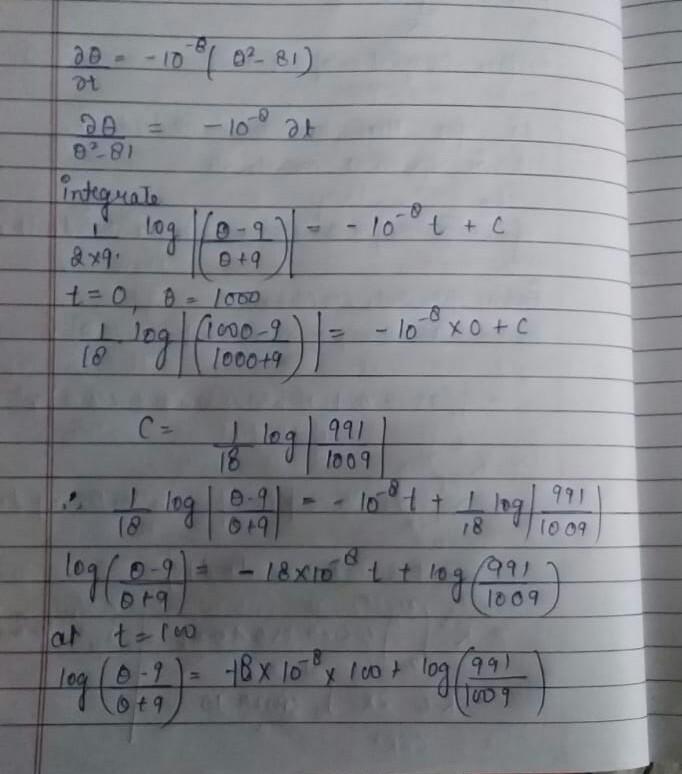 ∂θ/∂t = -10⁻⁸( θ² - 81)
∂θ/θ²-81 = -10⁻⁸ ∂t
integrate
1/2×9. log |(θ-9/θ+9)| = -10⁻⁸ t + C
t=0, θ = 1000
1/18 log |(1000-9/1000+9)| = -10⁻⁸ × 0 + C
C = 1/18 log |991/1009|
∴ 1/18 log |θ-9/θ+9| = -10⁻⁸ t + 1/18 log |991/1009|
log (θ-9/θ+9) = -18×10⁻⁸ t + log (991/1009)
at t=100
log (θ-9/θ+9) = -18 × 10⁻⁸ × 100 + log (991/1009)